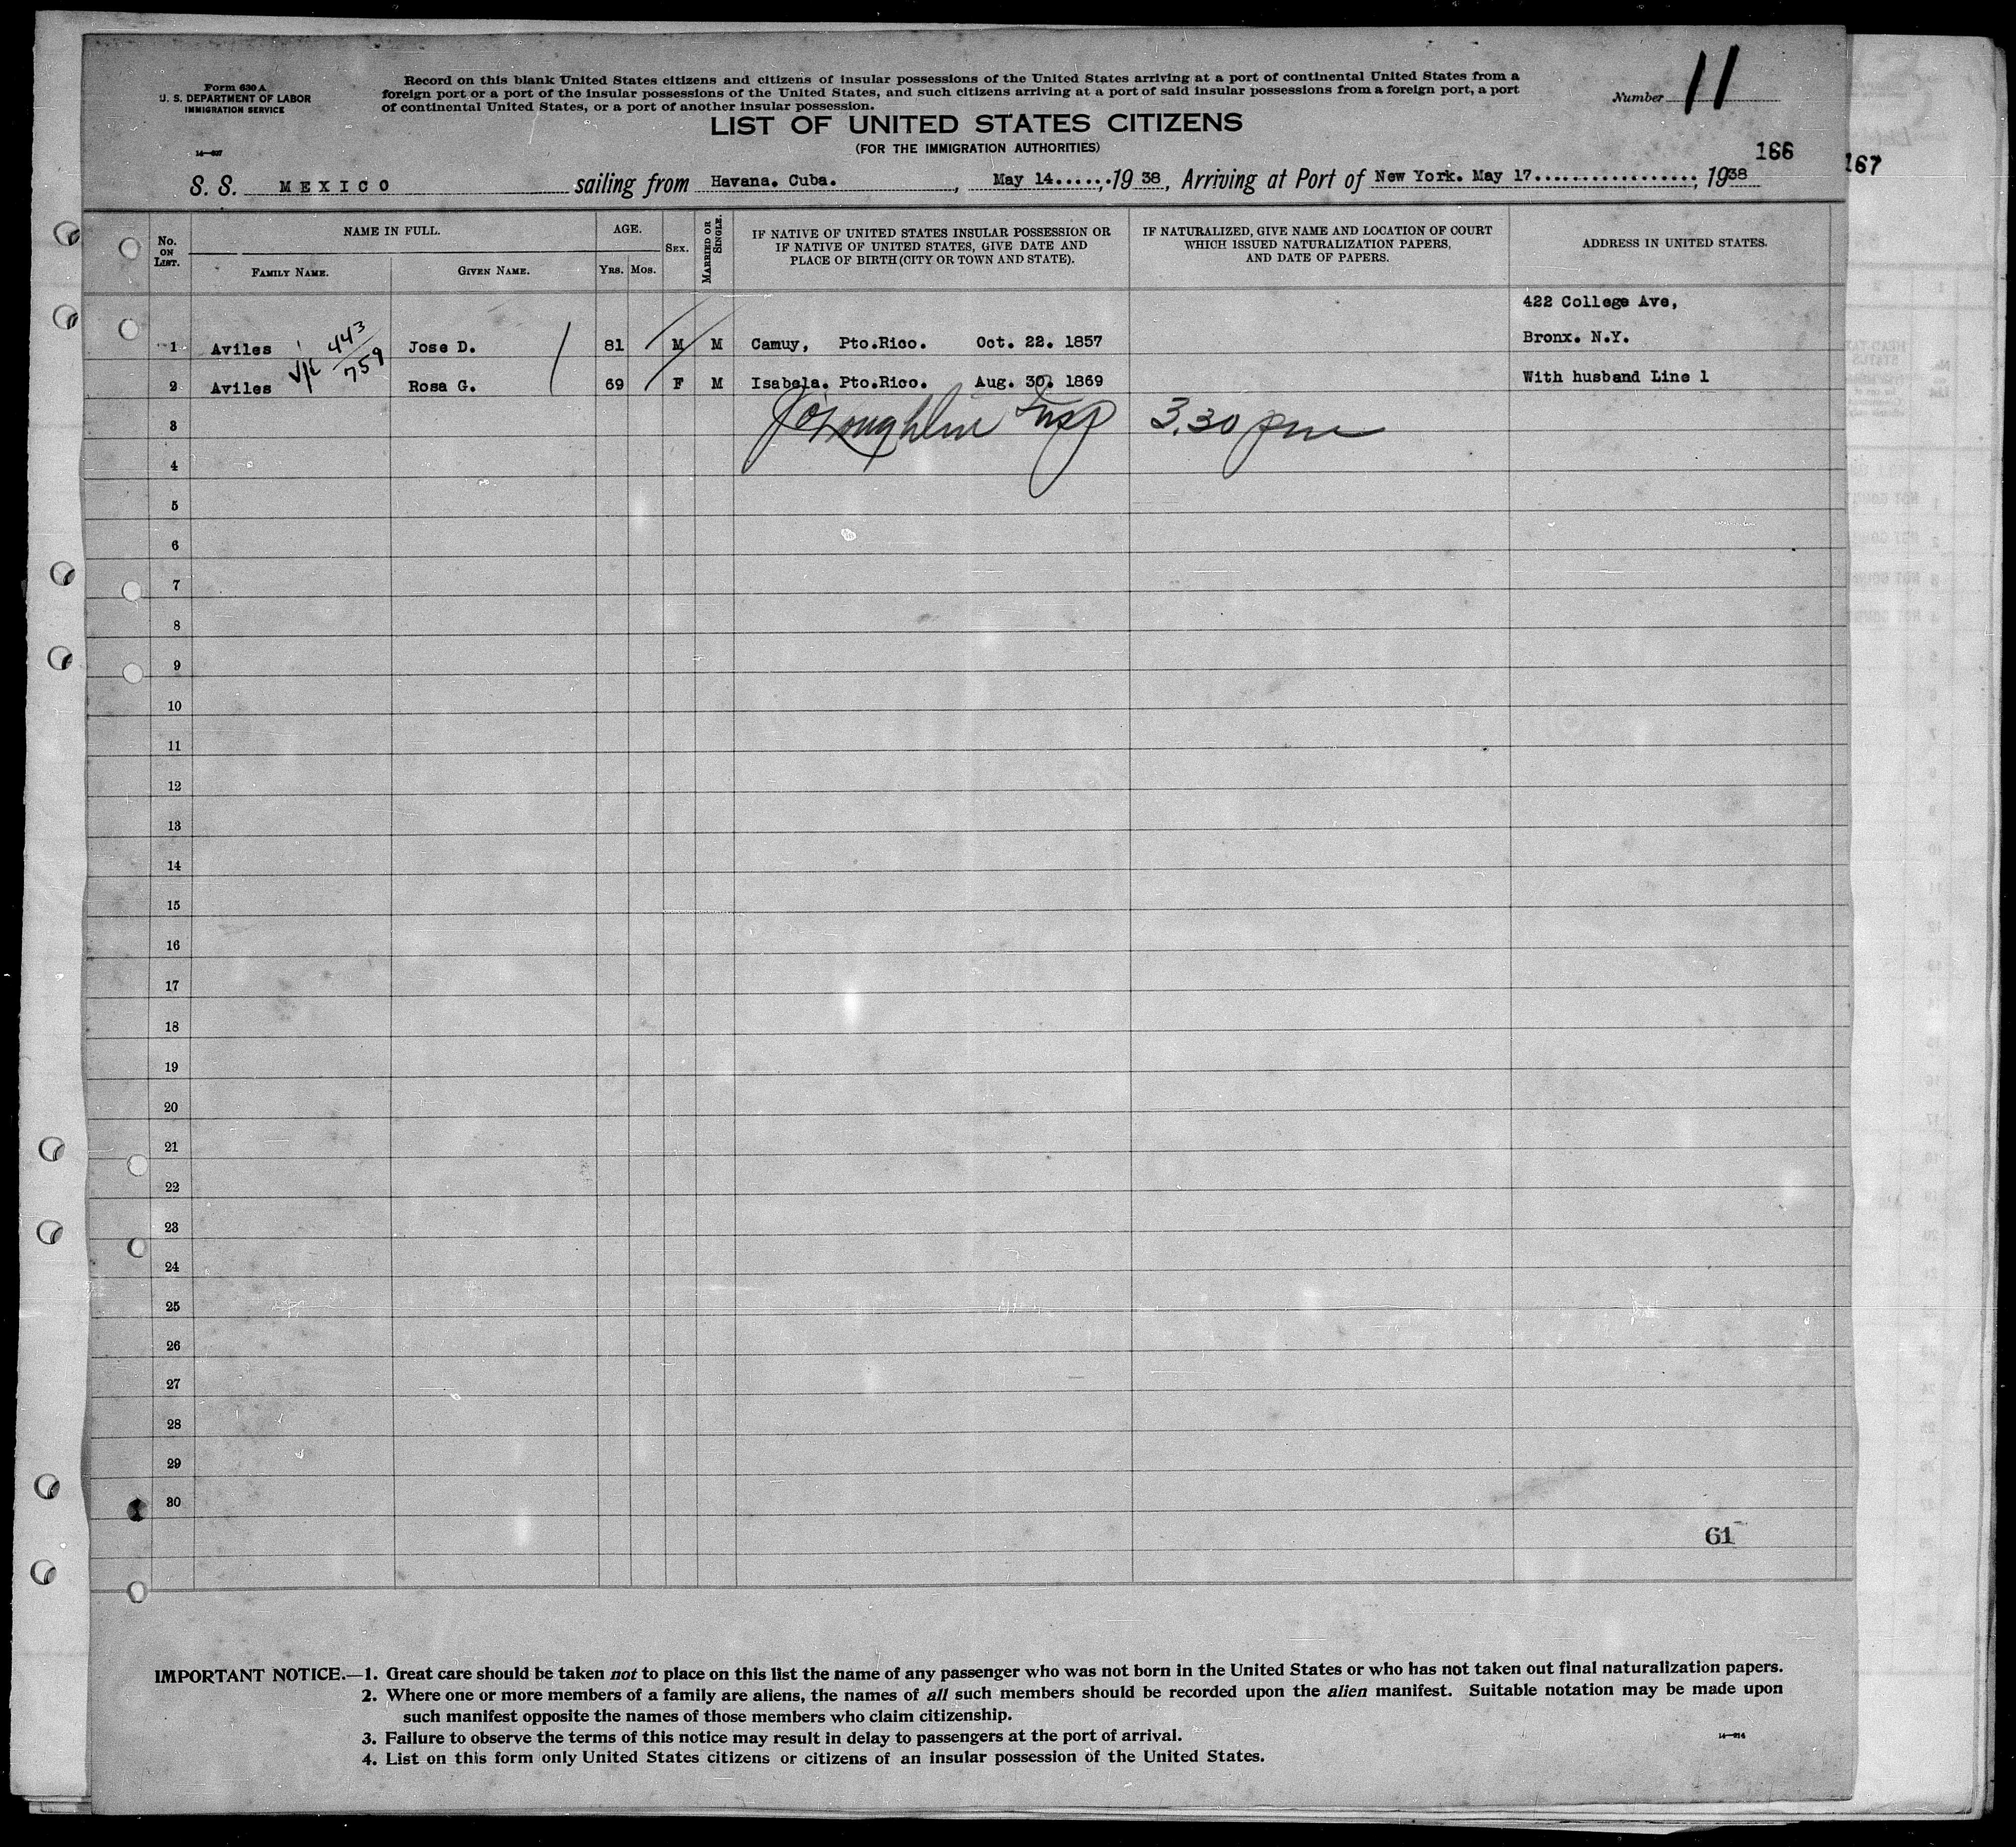 Form 630 A
U. S. DEPARTMENT OF LABOR
IMMIGRATION SERVICE
Record on this blank United States citizens and citizens of insular possessions of the United States arriving at a port of continental United States from a
foreign port or a port of the insular possessions of the United States, and such citizens arriving at a port of said insular possessions from a foreign port, a port
of continental United States, or a port of another insular possession.
Number 11
LIST OF UNITED STATES CITIZENS
(FOR THE IMMIGRATION AUTHORITIES)
166
167
S. S. MEXICO sailing from Havana. Cuba. , May 14......, 19 38, Arriving at Port of New York. May 17.................., 1938
No. ON LIST.
NAME IN FULL.
FAMILY NAME.
GIVEN NAME.
AGE.
YRS. MOS.
SEX.
MARRIED OR SINGLE.
IF NATIVE OF UNITED STATES INSULAR POSSESSION OR
IF NATIVE OF UNITED STATES, GIVE DATE AND
PLACE OF BIRTH (CITY OR TOWN AND STATE).
IF NATURALIZED, GIVE NAME AND LOCATION OF COURT
WHICH ISSUED NATURALIZATION PAPERS,
AND DATE OF PAPERS.
ADDRESS IN UNITED STATES.
422 College Ave,
1 Aviles Jose D. 81 M M Camuy, Pto.Rico. Oct. 22. 1857 Bronx. N.Y.
443
759
2 Aviles Rosa G. 69 F M Isabela. Pto.Rico. Aug. 30. 1869 With husband Line 1
3 J O'Loughlin Insp 3.30 pm
4
5
6
7
8
9
10
11
12
13
14
15
16
17
18
19
20
21
22
23
24
25
26
27
28
29
30
61
IMPORTANT NOTICE.—1. Great care should be taken not to place on this list the name of any passenger who was not born in the United States or who has not taken out final naturalization papers.
2. Where one or more members of a family are aliens, the names of all such members should be recorded upon the alien manifest. Suitable notation may be made upon
such manifest opposite the names of those members who claim citizenship.
3. Failure to observe the terms of this notice may result in delay to passengers at the port of arrival.
4. List on this form only United States citizens or citizens of an insular possession of the United States.